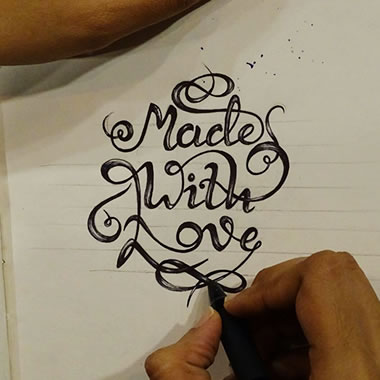 Made
With
Love